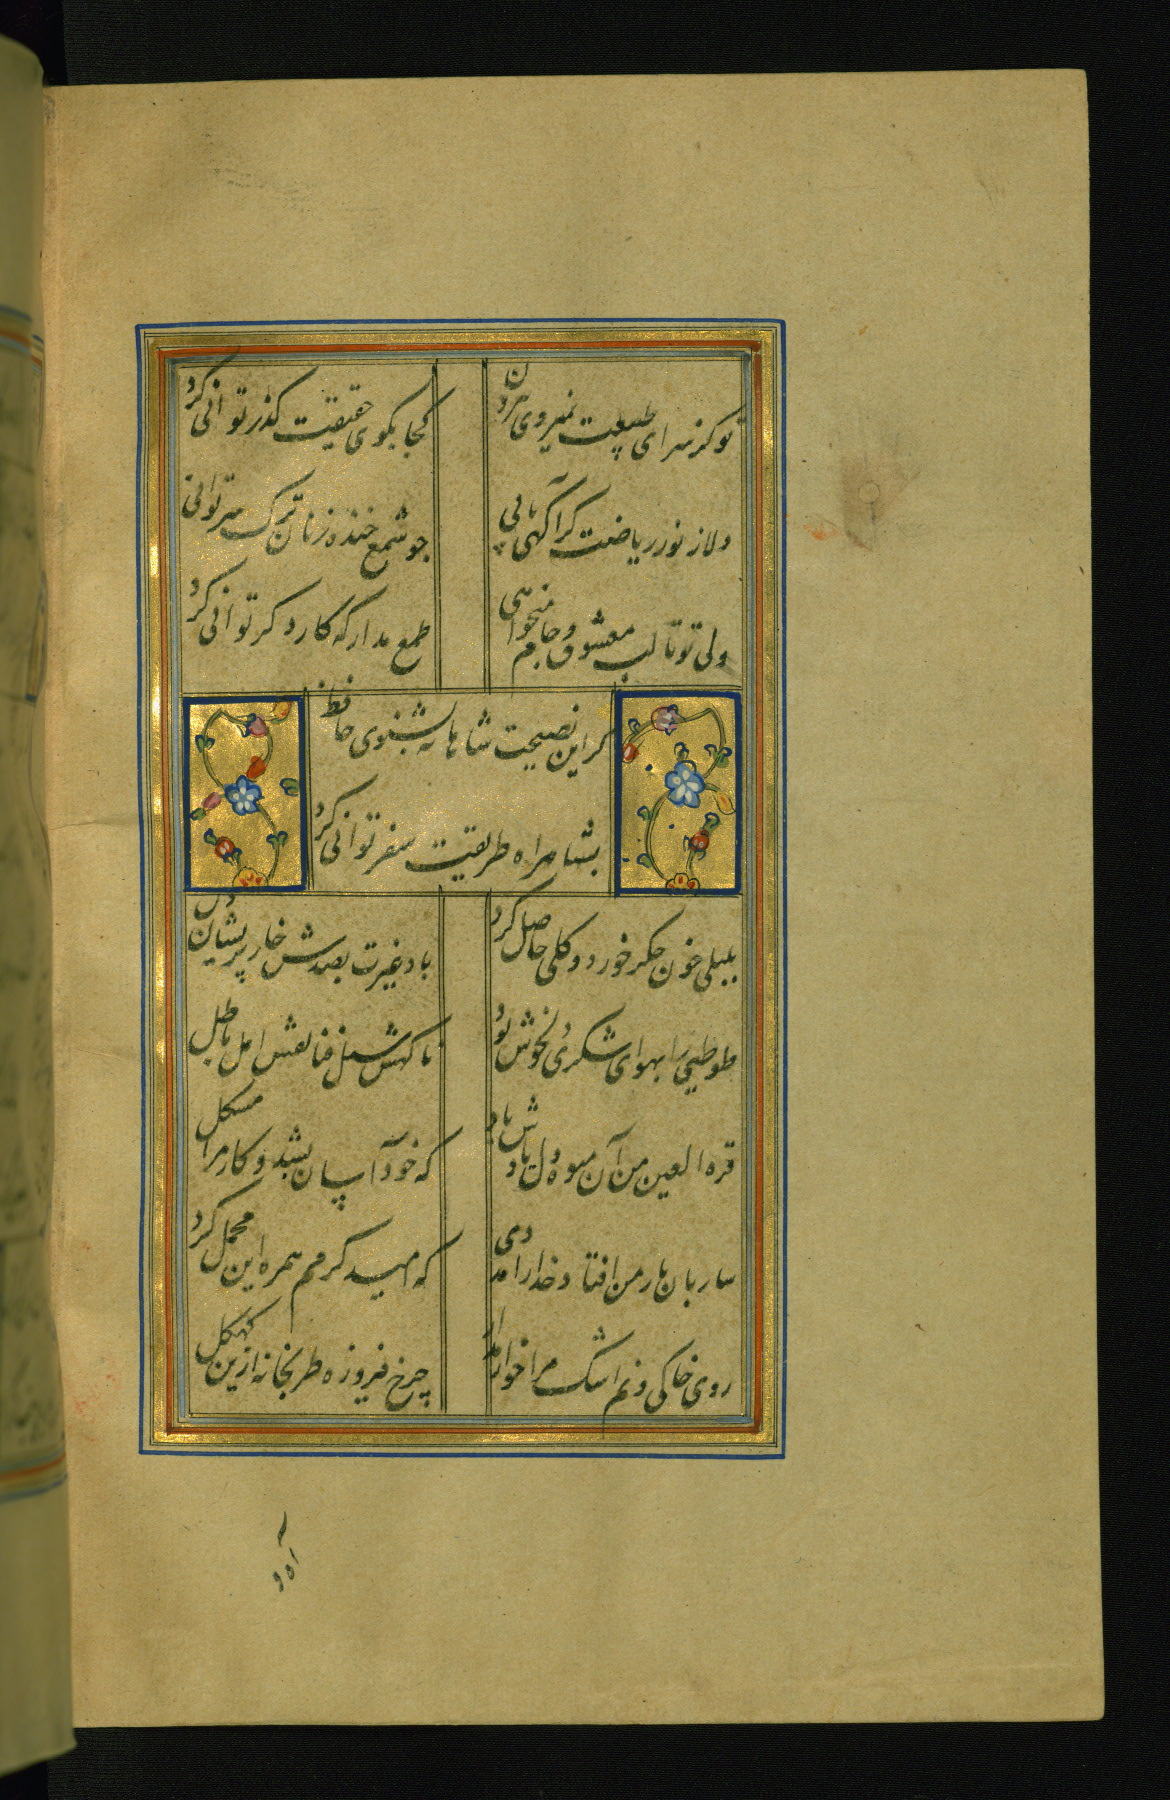 تو کز سرای طبیعت نمیروی بیرون
کجا بکوی حقیقت کذر توانی کرد
دلا ز نور ریاضت کر آکهی یابی
چو شمع خنده زنان ترک سر توانی
ولی تو تا لب معشوق و جام میخواهی
طمع مدار که کار دکر توانی کرد
کر این نصیحت شاهانه بشنوی حافظ
بشاهراه طریقت سفر توانی کرد
بلبلی خون جکر خورد و کلی حاصل کرد
باد غیرت بصدش خار پریشان دل
طوطیی را بهوای شکری دلخوش بود
ناکهش سیل فنا نقش امل باطل
قرة العین من آن میوه دل یادش باد
که خود آسان بشد و کار مرا مشکل
ساربان بار من افتاد خدا را مددی
که امید کرمم همره این محمل کرد
روی خاکی و نم اشک مرا خوار مدار
چرخ فیروزه طربخانه ازین کهکل
آه و